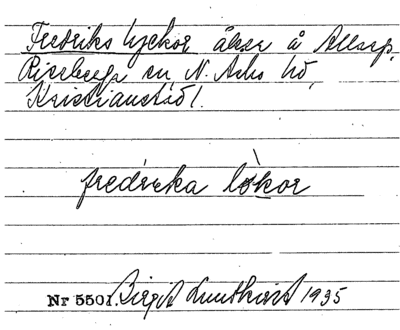 Fredriks lyckor åker å Allarp,
Rinkaby sn N. Åsbo hd,
Kristianstads l.
fredrika lökor
Nr 5501. Birgit Lundkvist 1935